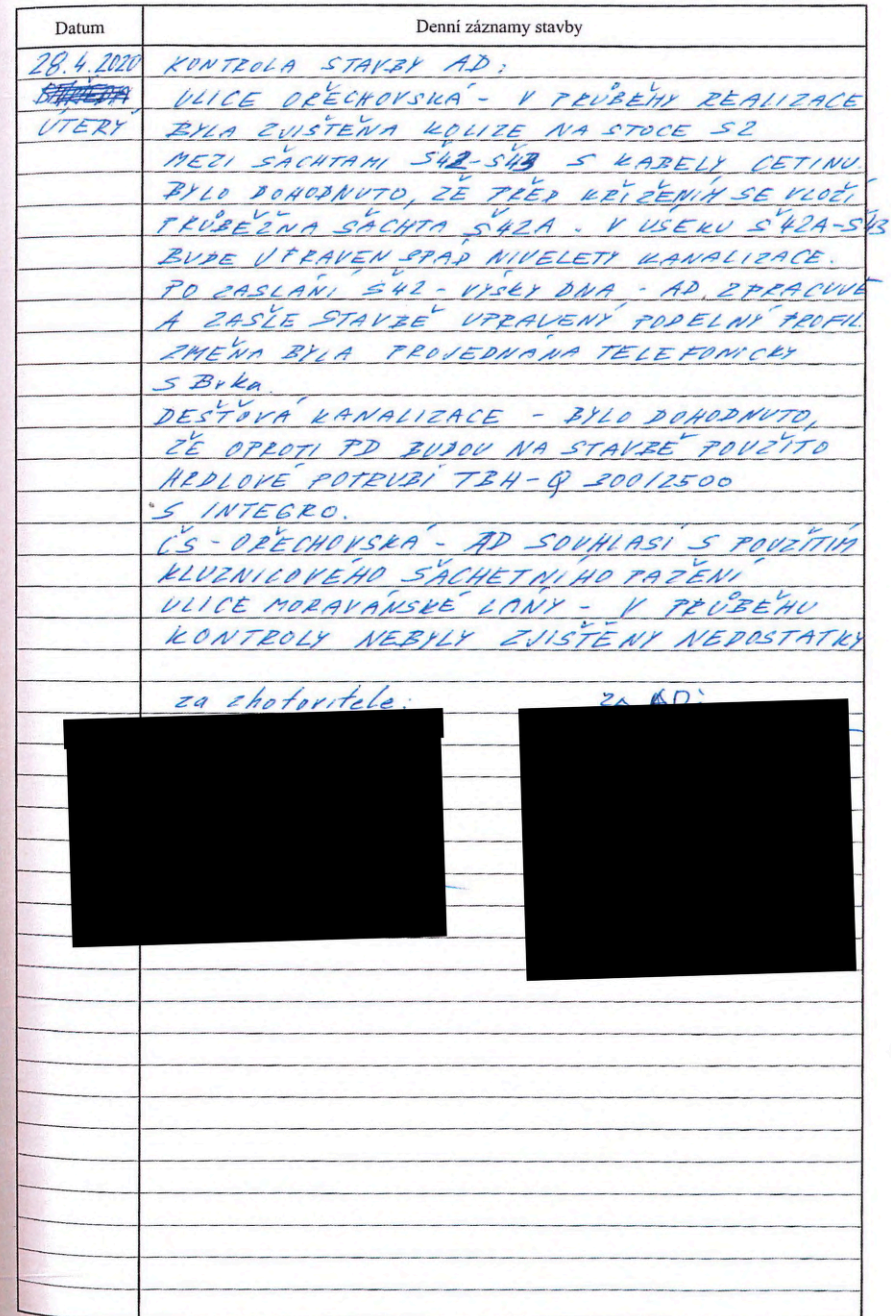 Datum Denní záznamy stavby
28.4.2020 KONTROLA STAVBY AD:
ULICE OŘECHOVSKÁ - V PRŮBĚHY REALIZACE
ÚTERÝ BYLA ZJIŠTĚNA KOLIZE NA STOCE S2
MEZI ŠACHTAMI Š42-Š43 S KABELY CETINU.
BYLO DOHODNUTO, ŽE PŘED KŘÍŽENÍM SE VLOŽÍ
PRŮBĚŽNÁ ŠACHTA Š42A. V ÚSEKU Š42A-Š43
BUDE UPRAVEN SPÁD NIVELETY KANALIZACE.
PO ZASLÁNÍ Š42 - VÝŠKY DNA - AD. ZPRACUVE
A ZAŠLE STAVBĚ UPRAVENÝ PODELNÝ PROFIL.
ZMĚNA BYLA PROJEDNÁNA TELEFONICKY
S Brka.
DEŠŤOVÁ KANALIZACE - BYLO DOHODNUTO,
ŽE OPROTI PD BUDOU NA STAVBĚ POUŽITO
HRDLOVÉ POTRUBÍ TBH-Q 300/2500
S INTEGRO.
ČS - OŘECHOVSKÁ - AD SOUHLASÍ S POUŽITÍM
KLUZNICOVÉHO ŠACHETNÍHO PAŽENÍ
ULICE MORAVANSKÉ LÁNY - V PRŮBĚHU
KONTROLY NEBYLY ZJIŠTĚNY NEDOSTATKY
za zhotovitele: za AD: